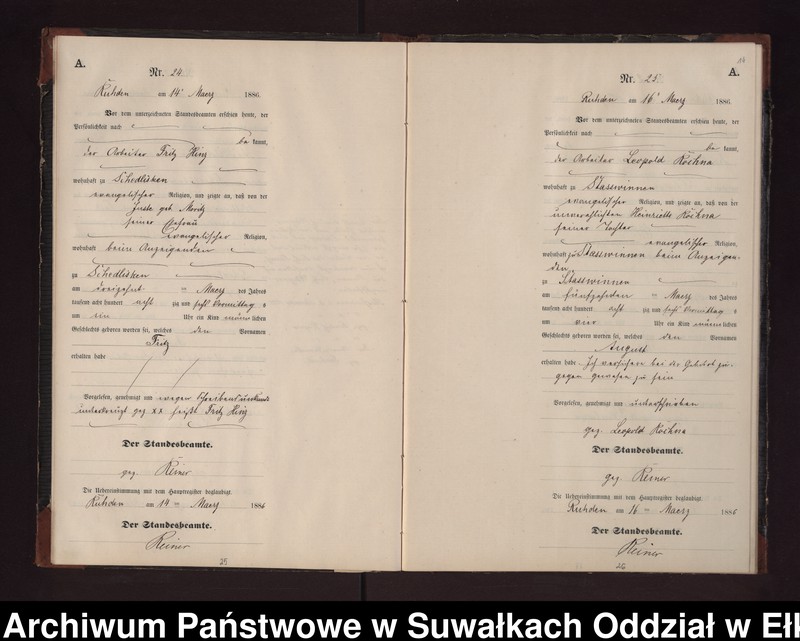 A.
Nr. 24.
Ruhden am 14t Maerz 1886.
Vor dem unterzeichneten Standesbeamten erschien heute, der
Persönlichkeit nach
be kannt,
der Arbeiter Fritz Hinz
wohnhaft zu Schedlisken
evangelischer Religion, und zeigte an, daß von der
Juste geb. Moritz
seiner Ehefrau
evangelischer Religion,
wohnhaft beim Anzeigenden
zu Schedlisken
am dreizehnt en Maerz des Jahres
tausend acht hundert acht zig und sechs Vormittag s
um ein Uhr ein Kind männ lichen
Geschlechts geboren worden sei, welches den Vornamen
Fritz
erhalten habe
Vorgelesen, genehmigt und wegen Schreibensunkunde
unterkreuzt gez. xx heißt Fritz Hinz
Der Standesbeamte.
gez. Reiner
Die Uebereinstimmung mit dem Hauptregister beglaubigt
Ruhden am 14 ten Maerz 1886
Der Standesbeamte.
Reiner
25
A.
Nr. 25.
Ruhden am 16t Maerz 1886.
Vor dem unterzeichneten Standesbeamten erschien heute, der
Persönlichkeit nach
be kannt,
der Arbeiter Leopold Kochna
wohnhaft zu Stasswinnen
evangelischer Religion, und zeigte an, daß von der
unverehlichten Heinriette Kochna
seiner Tochter
evangelischer Religion,
wohnhaft zu Stasswinnen beim Anzeigen-
den
zu Stasswinnen
am fünfzehnten Maerz des Jahres
tausend acht hundert acht zig und sechs Vormittag s
um vier Uhr ein Kind männ lichen
Geschlechts geboren worden sei, welches den Vornamen
August
erhalten habe Ich versichere bei der Geburt zu-
gegen gewesen zu sein
Vorgelesen, genehmigt und unterschrieben
gez. Leopold Kochna
Der Standesbeamte.
gez. Reiner
Die Uebereinstimmung mit dem Hauptregister beglaubigt
Ruhden am 16 ten Maerz 1886
Der Standesbeamte.
Reiner
26
Archiwum Państwowe w Suwałkach Oddział w Eł